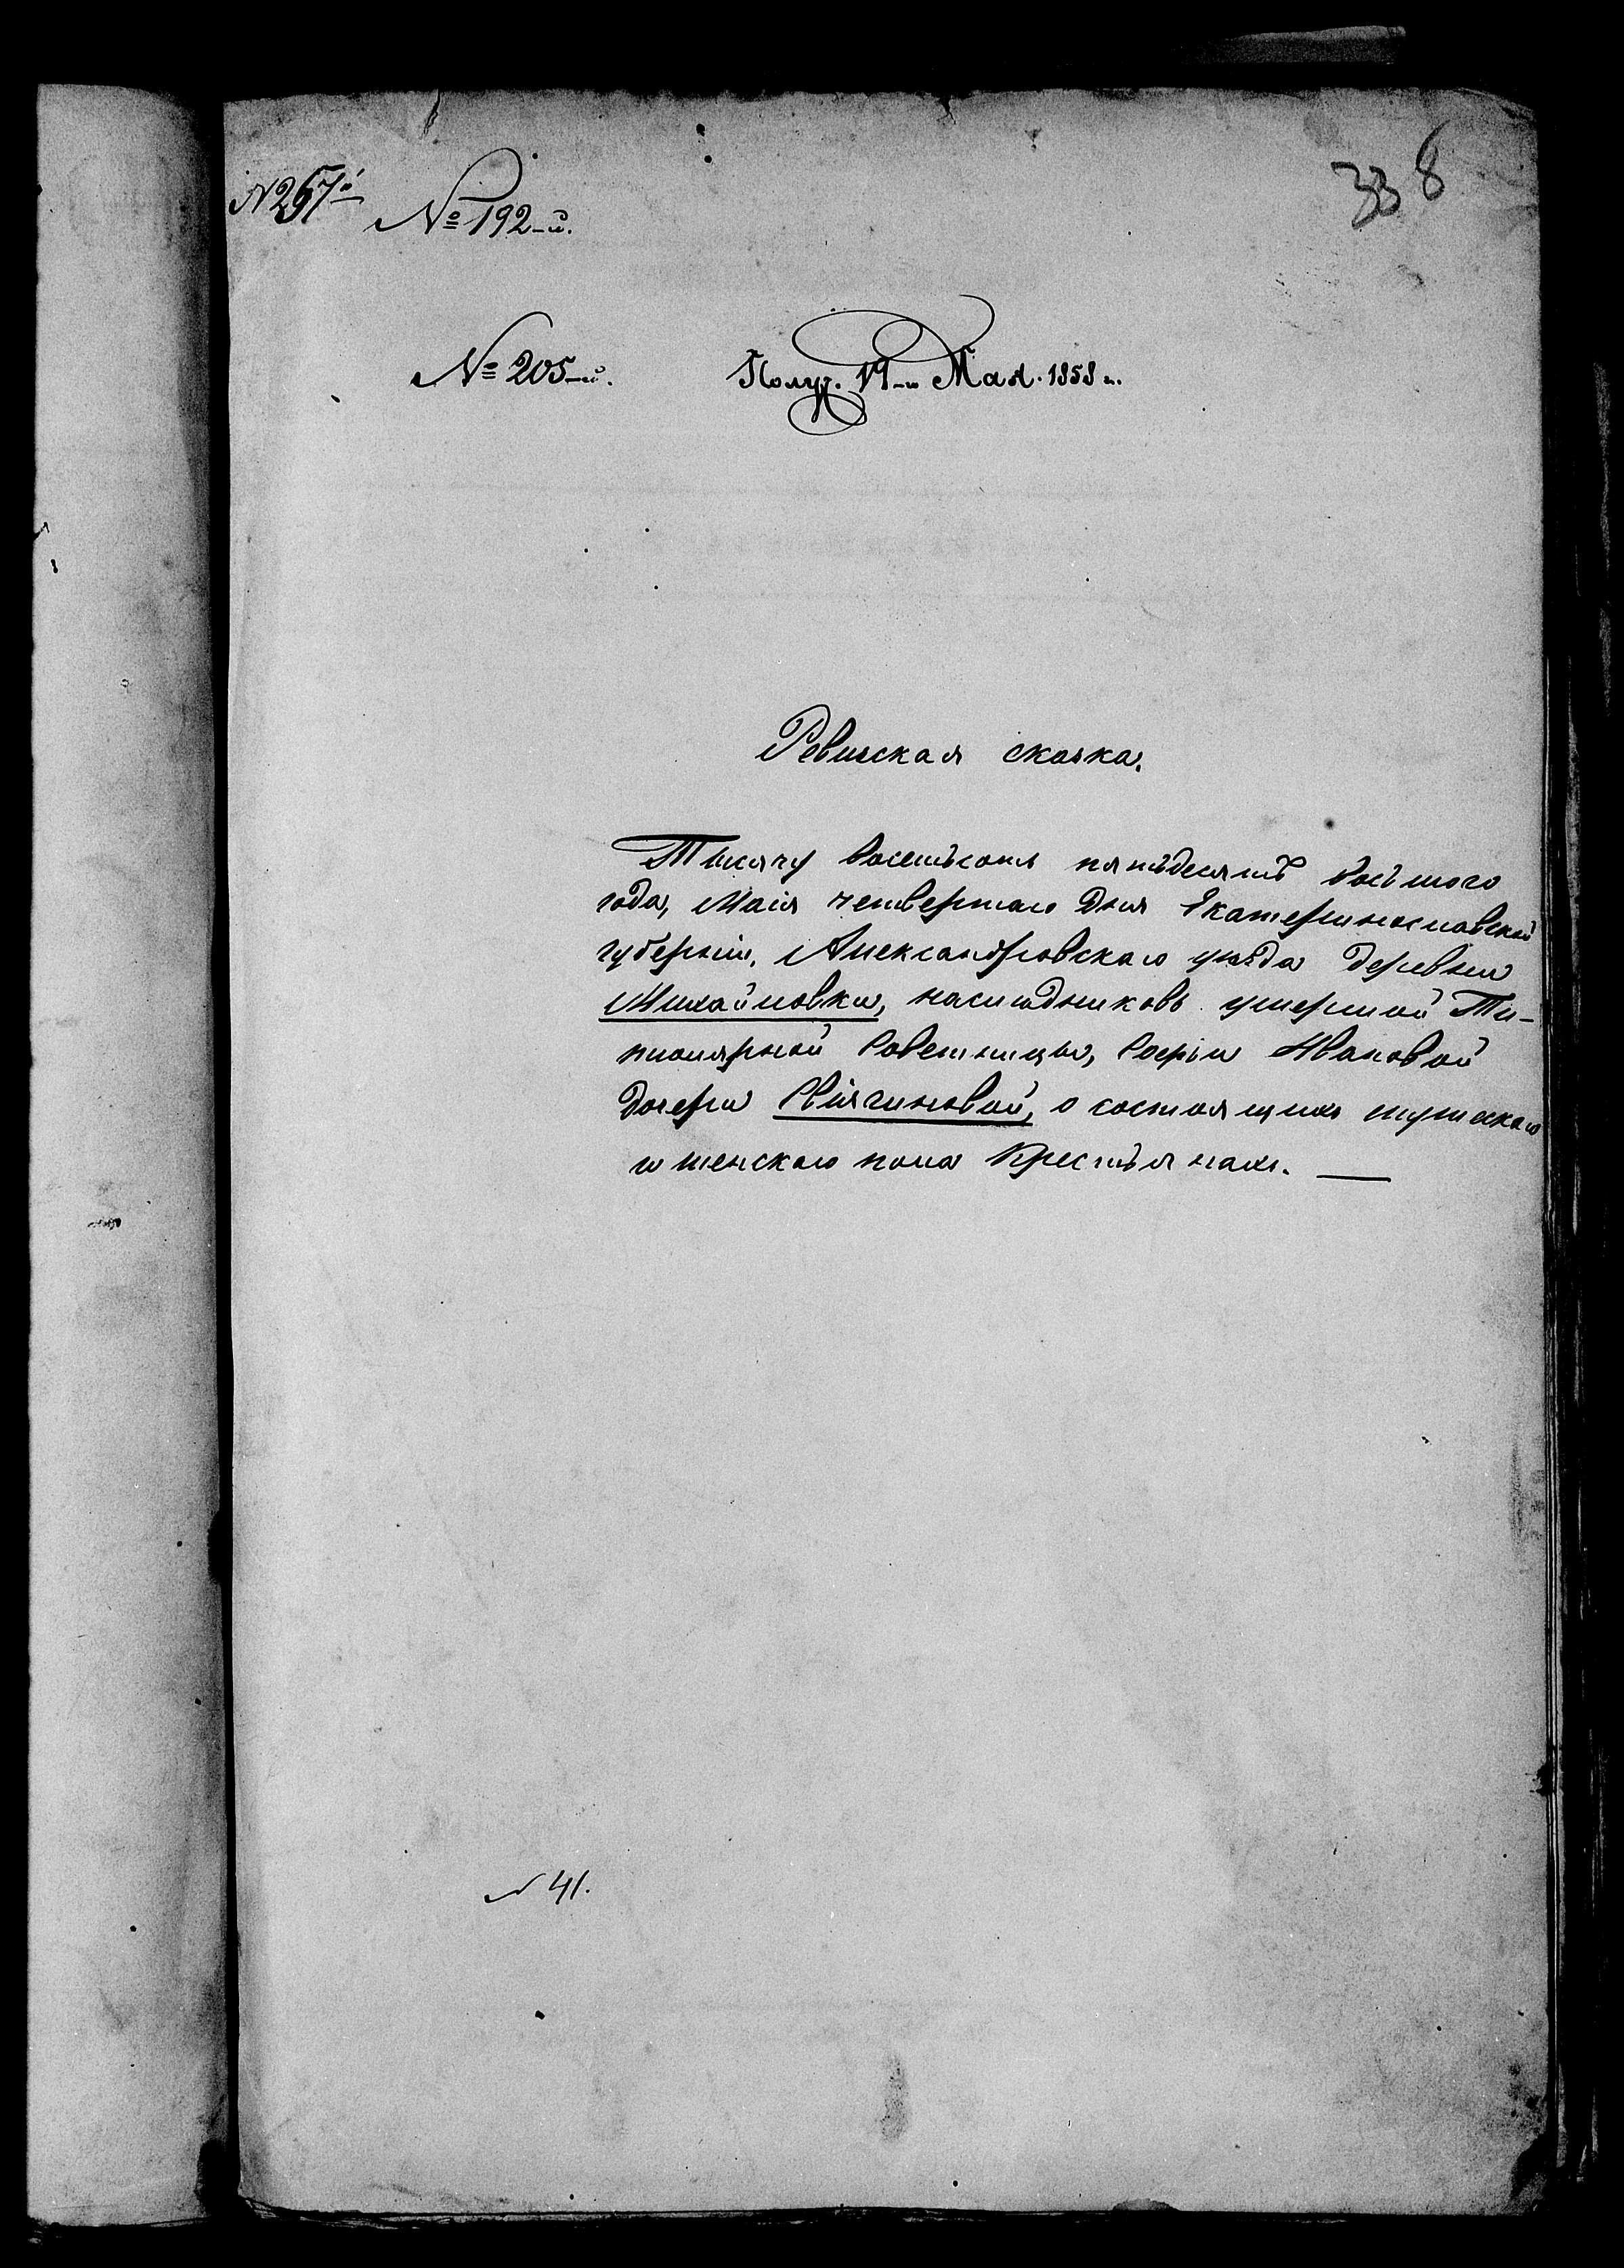 338
№ 257й
№ 192-й.
№ 205-й. Получ. 19-го Мая. 1858 г.
Ревизская сказка.
Тысячу восемьсотъ пятьдесятъ восьмого
года, Маія четвертаго дня Екатеринославской
губерніи, Александровскаго уѣзда деревни
Михайловки, наслѣдниковъ умершой Ти-
тюлярной Советницы, Софіи Ивановой
дочери Свіягиновой, о состоящихъ мужскаго
и женскаго пола Крестьянахъ.
N 41.